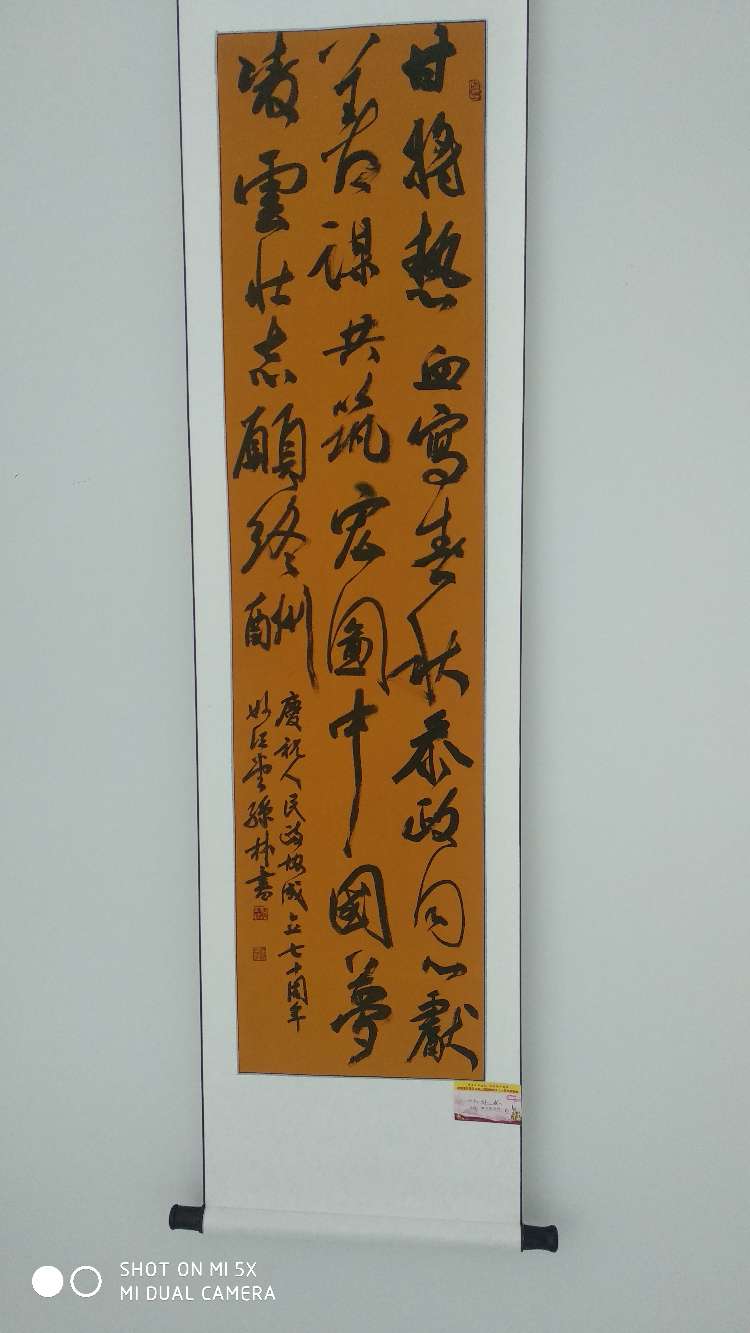 甘将热血写春秋参政同心献
善谋共筑宏图中国夢
凌雲壮志願终酬
慶祝人民政协成立七十周年
孫林書
SHOT ON MI 5X
MI DUAL CAMERA